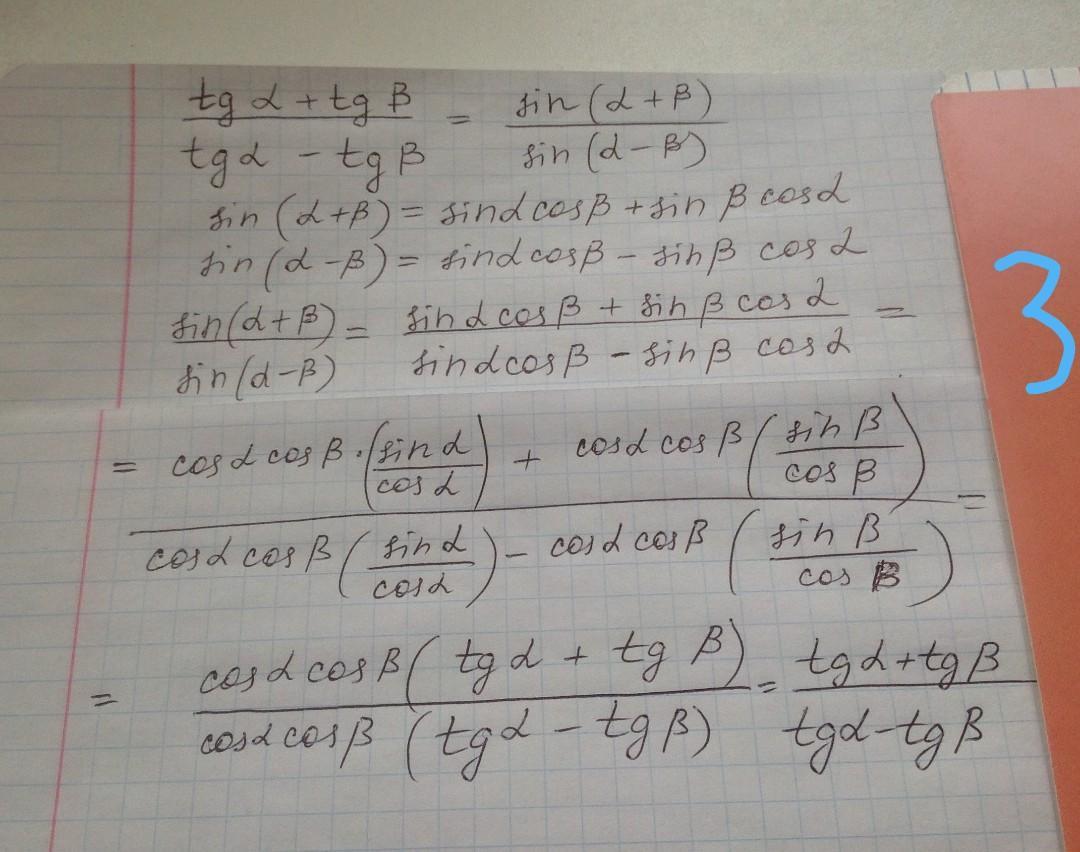 (tg α + tg β)/(tg α − tg β) = sin (α + β)/sin (α − β)
sin (α+β) = sinα cosβ + sin β cosα
sin (α−β) = sinα cosβ − sinβ cos α
sin(α+β)/sin(α−β) = (sin α cos β + sin β cos α)/(sinα cosβ − sinβ cosα) =
= (cosα cosβ · (sin α/cos α) + cosα cosβ (sin β/cos β))/(cosα cosβ (sin α/cosα) − cosα cosβ (sin β/cos β)) =
= (cosα cosβ (tg α + tg β))/(cosα cosβ (tg α − tg β)) = (tg α + tg β)/(tgα − tg β)
3